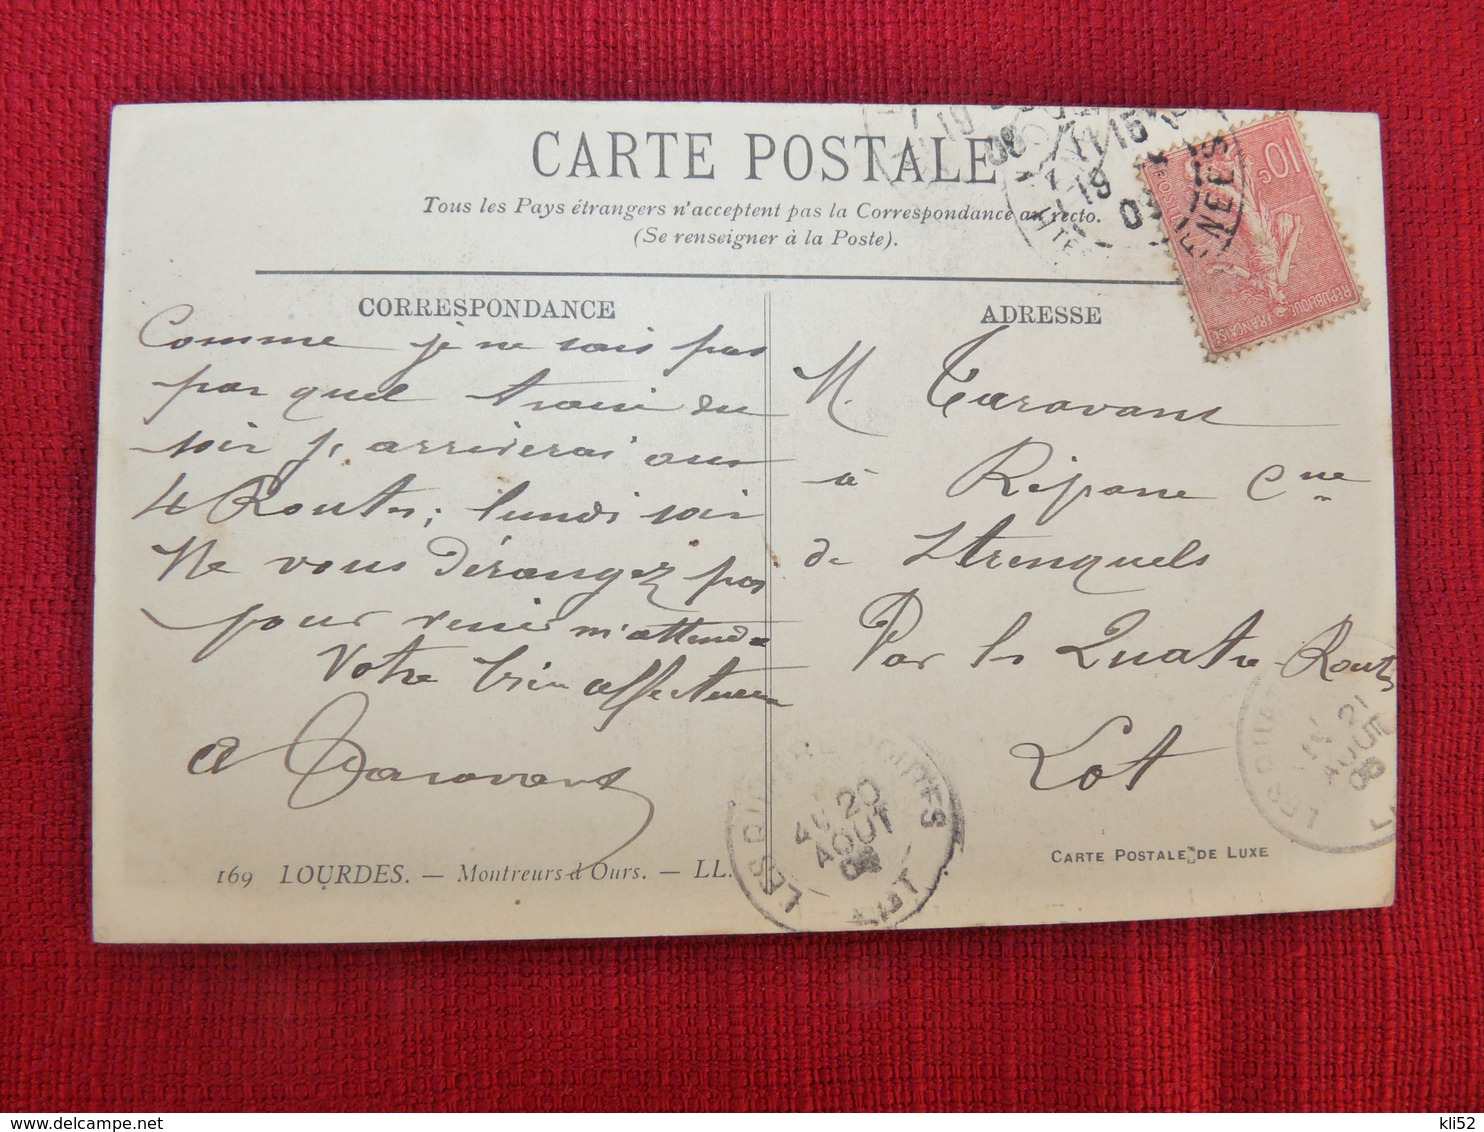 CARTE POSTALE
Tous les Pays étrangers n'acceptent pas la Correspondance au recto.
(Se renseigner à la Poste).
CORRESPONDANCE
Comme je ne sais pas
par quel train du
soir j'arriverai aux
4 Routes; lundi soir
Ne vous dérangez pas
pour venir m'attendre
Votre bien affectueux
A Taravant
169 LOURDES. — Montreurs d'Ours. — LL.
ADRESSE
M. Taravant
à Ripane Cne
de Strenquels
Par les Quatre-Routes
Lot
CARTE POSTALE DE LUXE
10c
POSTES
REPUBLIQUE FRANÇAISE
LES QUATRE ROUTES
20
AOUT
LOT
21
AOUT
06
kli52